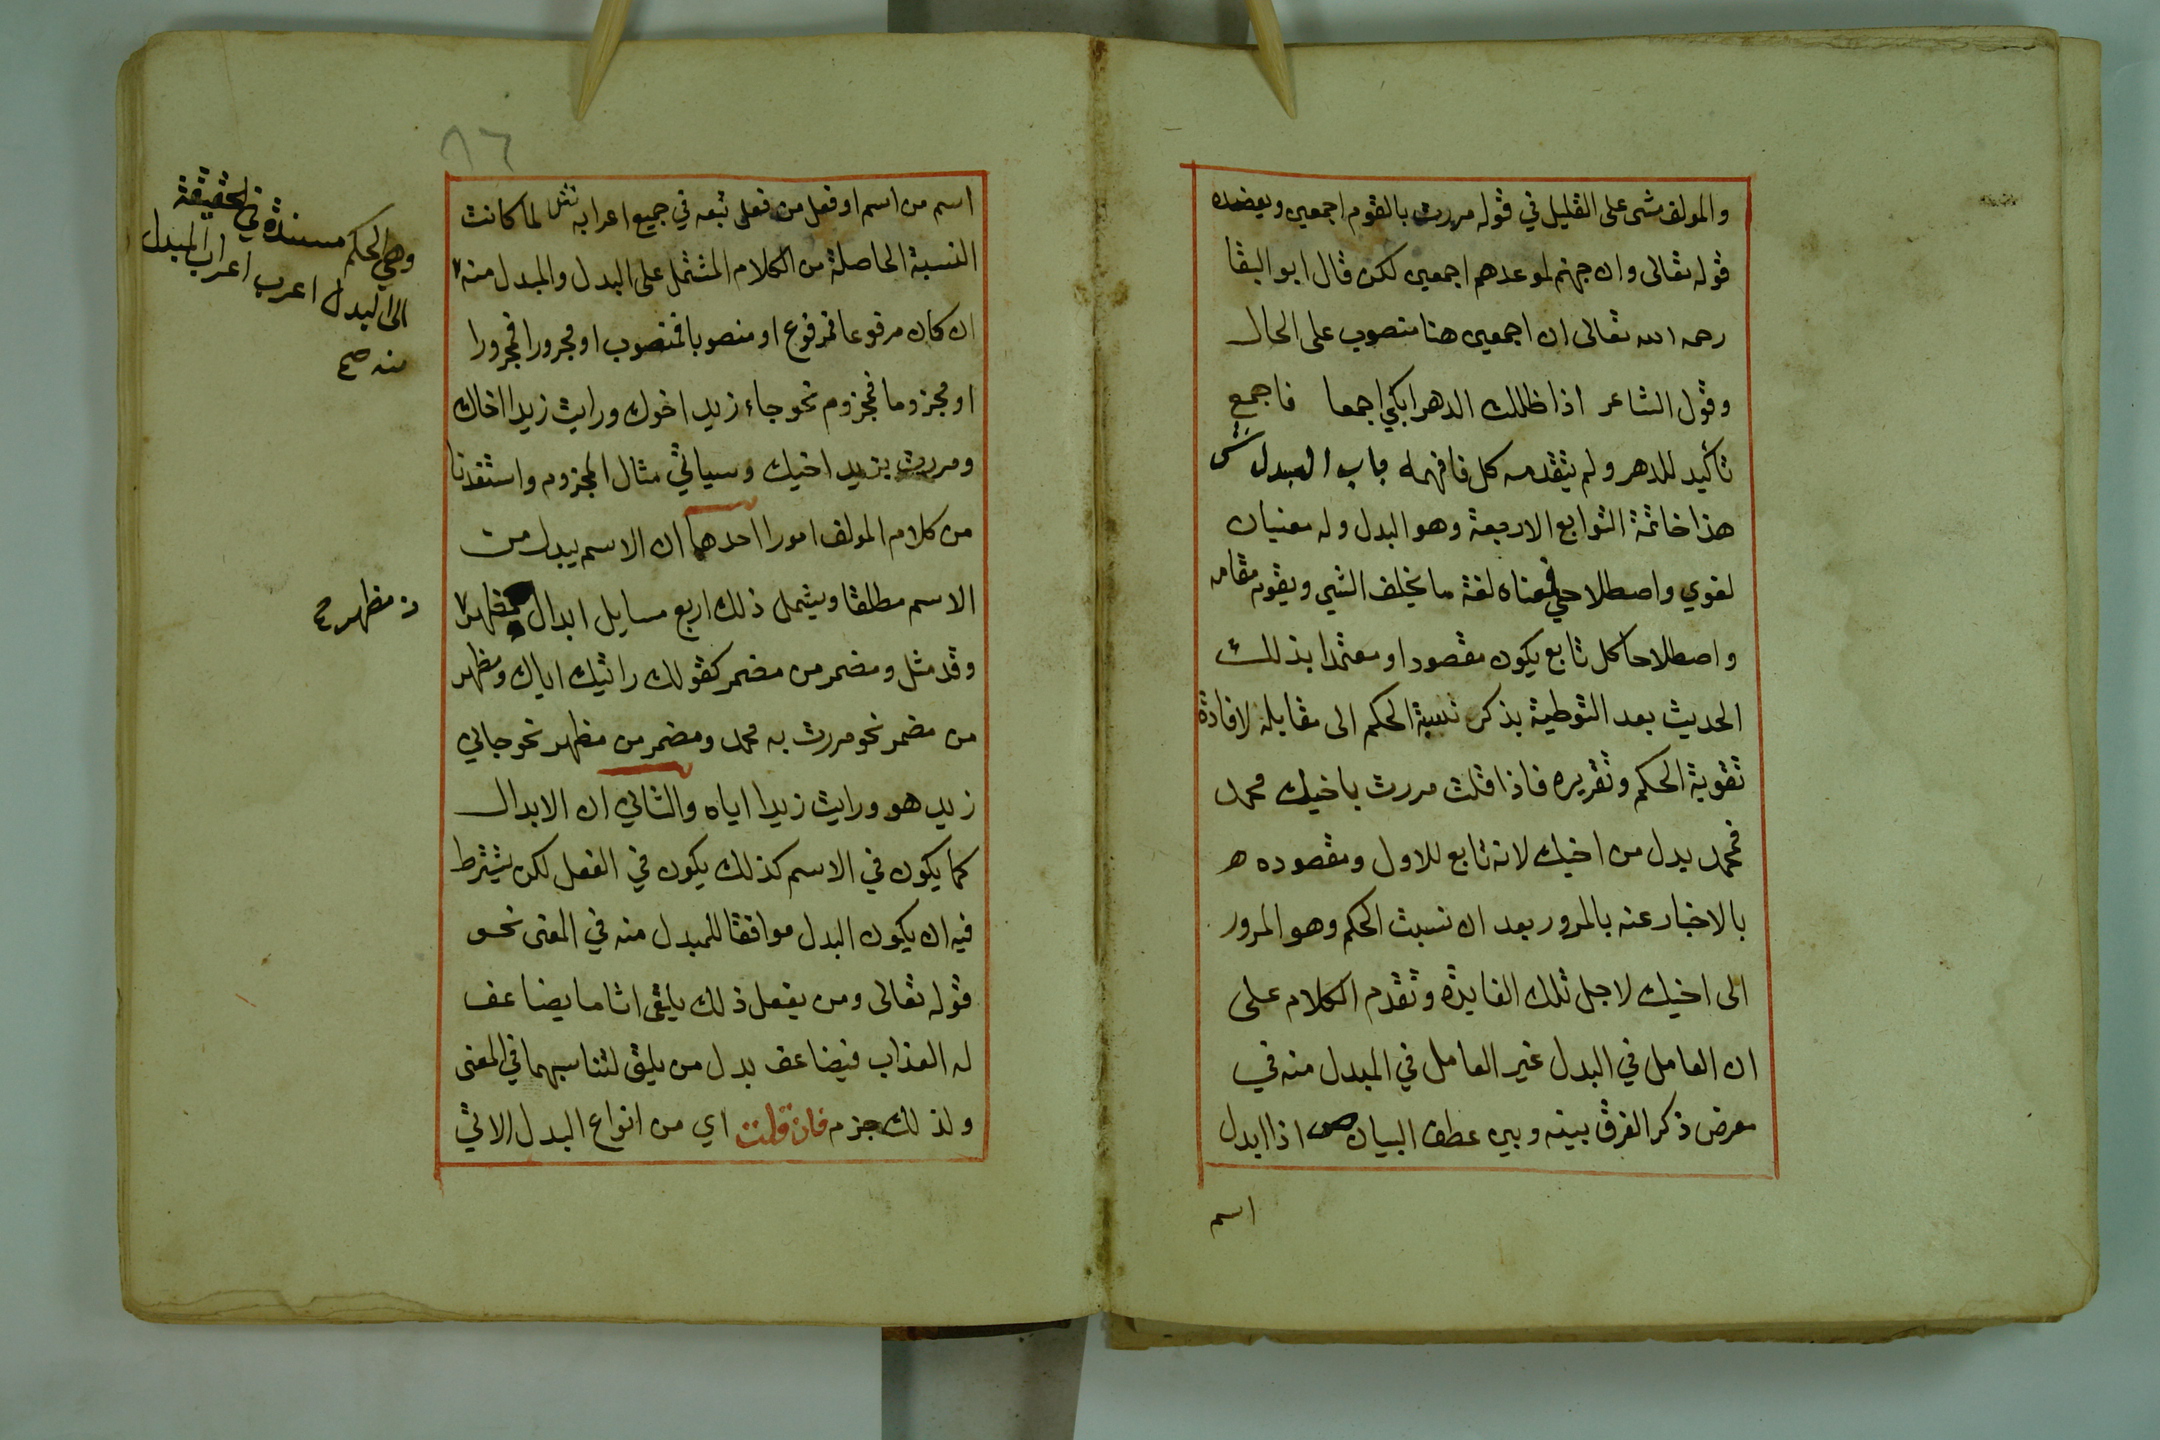 والمولف مشى على القليل في قوله مررت بالقوم اجمعين ويعضده
قوله تعالى وان جهنم لموعدهم اجمعين لكن قال ابو البقا
رحمه الله تعالى ان اجمعين هنا منصوب على الحال
وقول الشاعر اذا ظللت الدهر ابكي اجمعا فاجمع
تأكيد للدهر ولم يتقدمه كل فافهمه باب البدل ش
هذا خاتمة التوابع الاربعة وهو البدل وله معنيان
لغوي واصطلاحي فمعناه لغة ما يخلف الشي ويقوم مقامه
واصطلاحا كل تابع يكون مقصودا ومعتمدا بذلك
الحديث بعد التوطية بذكر نسبة الحكم الى مقابله لافادة
تقوية الحكم وتقريره فاذا قلت مررت باخيك محمد
فمحمد بدل من اخيك لانه تابع للاول ومقصوده ه
بالاخبار عنه بالمرور بعد ان نسبت الحكم وهو المرور
الى اخيك لاجل تلك الفايدة وتقدم الكلام على
ان العامل في البدل غير العامل في المبدل منه في
معرض ذكر الفرق بينه وبين عطف البيان ص اذا ابدل
اسم
٨٦
اسم من اسم او فعل من فعل تبعه في جميع اعرابه لما كانت
النسبة الحاصلة من الكلام المشتمل على البدل والمبدل منه ٧
ان كان مرفوعا فمرفوع او منصوبا فمنصوب او مجرورا فمجرورا
او مجزوما فمجزوم نحو جاء زيد اخوك ورايت زيدا اخاك
ومررت بزيد اخيك وسياتي مثال المجزوم واستفدنا
من كلام المولف امورا احدها ان الاسم يبدل من
الاسم مطلقا ويشمل ذلك اربع مسايل ابدال مظهر ٧
وقد مثل ومضمر من مضمر كقولك راتيك اياك ومظهر
من مضمر نحو مررت به محمد ومضمر من مظهر نحو جاني
زيد هو ورايت زيدا اياه والثاني ان الابدال
كما يكون في الاسم كذلك يكون في الفعل لكن يشترط
فيه ان يكون البدل موافقا للمبدل منه في المعنى نحو
قوله تعالى ومن يفعل ذلك يلقى اثاما يضاعف
له العذاب فيضاعف بدل من يلق لتناسبهما في المعنى
ولذلك جزم فان قلت اي من انواع البدل الاتي
وهي الحكم مسندة في الحقيقة
الى البدل اعرب اعراب المبدل
منه صح
من مظهر صح